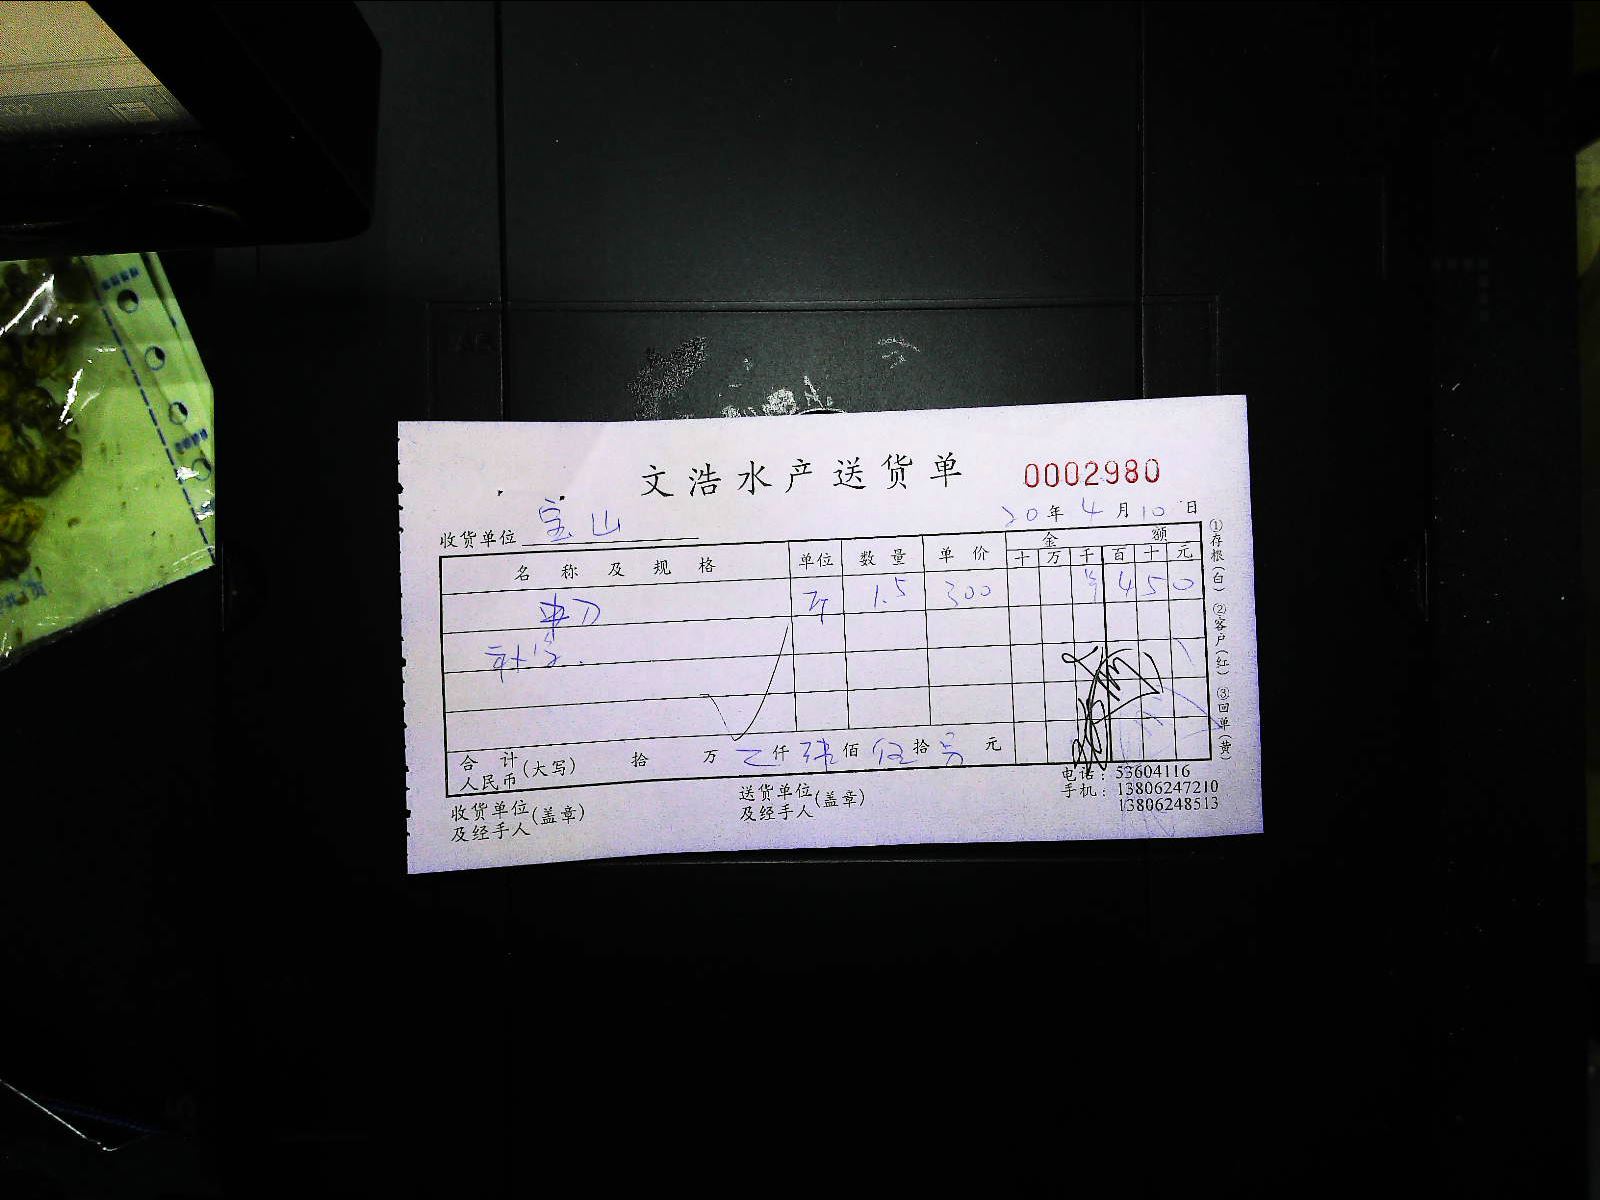 文浩水产送货单 0002980
20年4月10日
收货单位 宝山
名称及规格 单位 数量 单价 金额
十 万 千 百 十 元
斤 1.5 300 ¥ 4 5 0
合计人民币(大写) 拾 万 仟 肆 佰 伍 拾 元
收货单位及经手人(盖章) 送货单位及经手人(盖章)
电话：53604116
手机：13806247210
13806248513
①存根(白) ②客户(红) ③回单(黄)